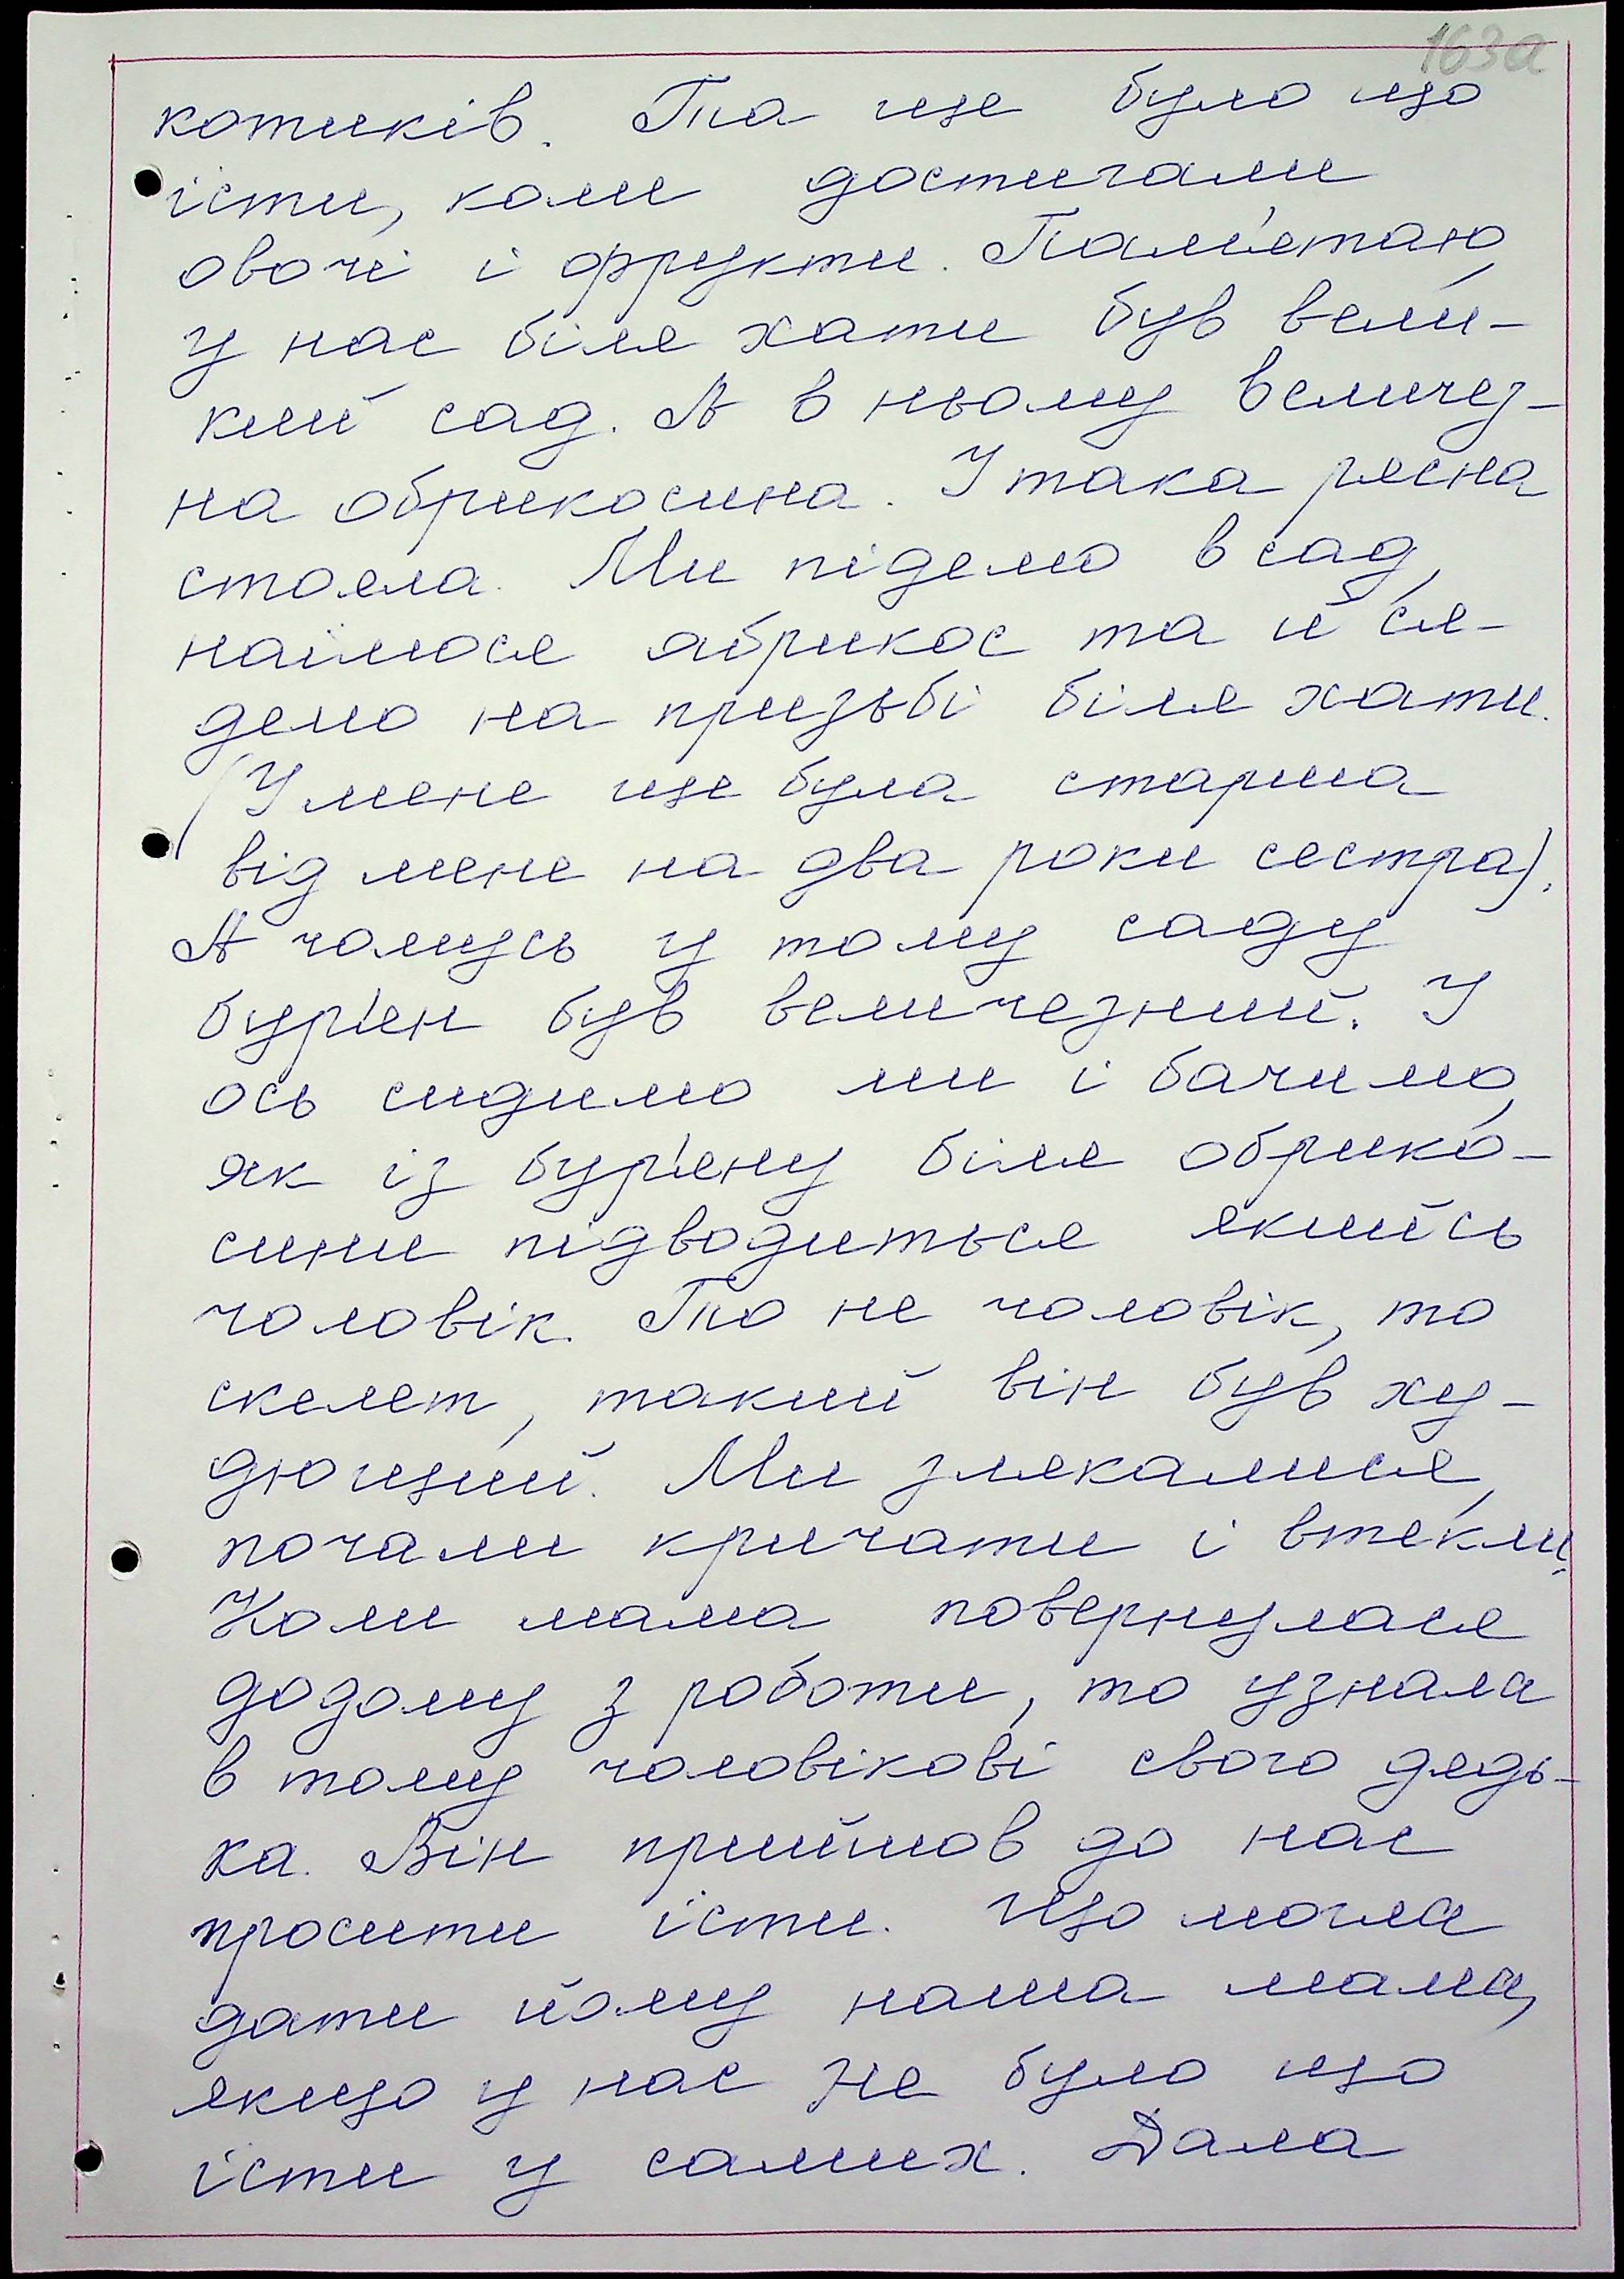 163а
котиків. Та ще було що
їсти, коли достигали
овочі і фрукти. Пам'ятаю,
у нас біля хати був вели-
кий сад. А в ньому величез-
на обрикосина. І така рясна
стояла. Ми підемо в сад,
наїмося абрикос та й ся-
демо на призьбі біля хати.
(У мене ще була старша
від мене на два роки сестра).
А чомусь у тому саду
бур'ян був величезний. І
ось сидимо ми і бачимо,
як із бур'яну біля обрико-
сини підводиться якийсь
чоловік. То не чоловік, то
скелет, такий він був ху-
дющий. Ми злякалися,
почали кричати і втекли.
Коли мама повернулася
додому з роботи, то узнала
в тому чоловікові свого дядь-
ка. Він прийшов до нас
просити їсти. Що могла
дати йому наша мама,
якщо у нас не було що
їсти у самих. Дала